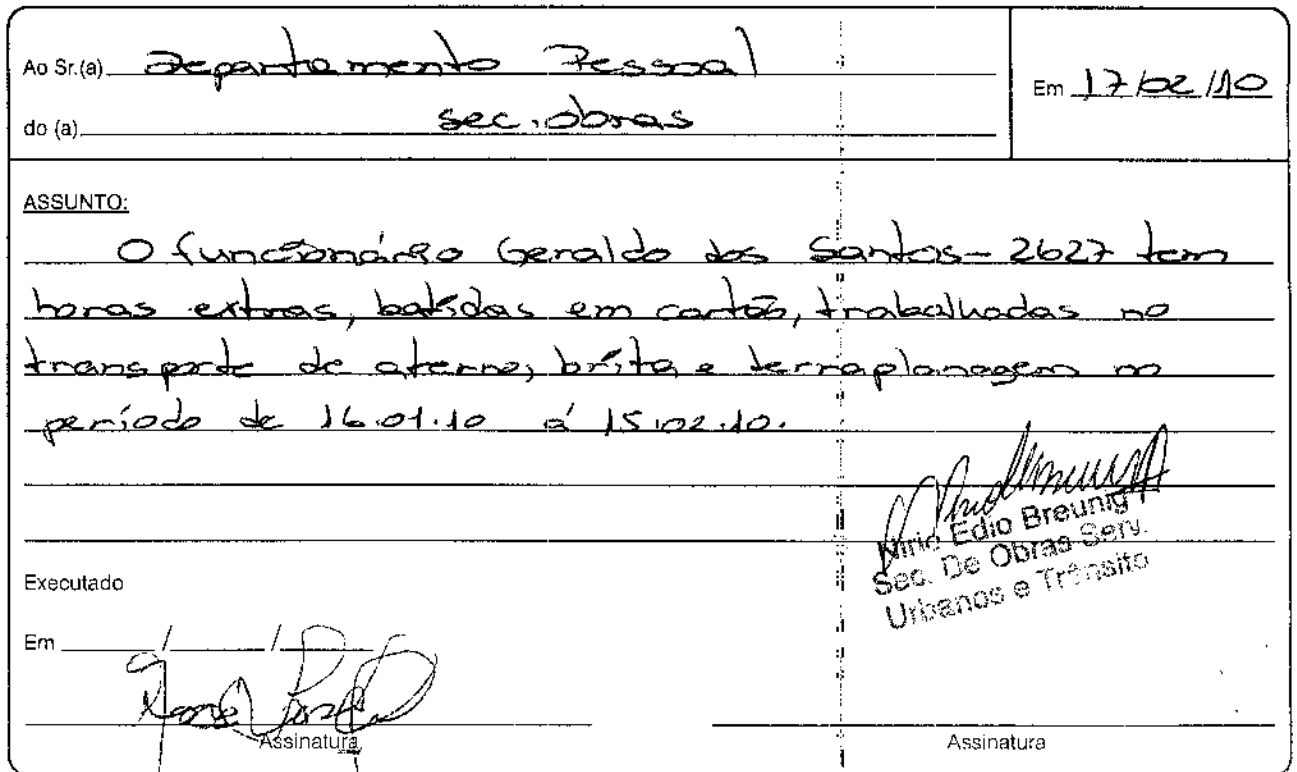 Ao Sr.(a) Departamento Pessoal
Em 17/02/10
do (a) sec. obras
ASSUNTO:
O funcionário Geraldo dos Santos - 2627 tem
horas extras, batidas em cartão, trabalhadas no
transporte de aterro, brita e terraplanagem no
período de 16.01.10 á 15.02.10.
Nirio Edio Breunig
Sec. De Obras Serv.
Urbanos e Trânsito
Executado
Em / /
Assinatura
Assinatura